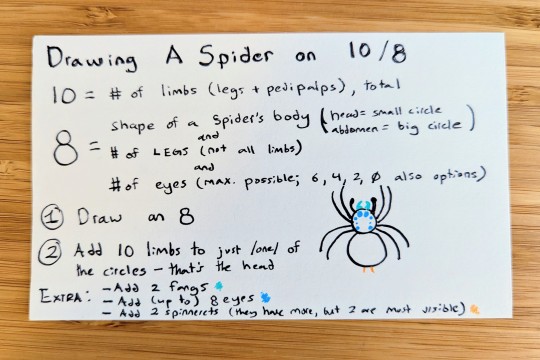 Drawing A Spider on 10/8
10 = # of limbs (legs + pedipalps), total
8 = shape of a spider's body (head = small circle abdomen = big circle)
and
# of LEGS (not all limbs)
and
# of eyes (max. possible; 6, 4, 2, 0 also options)
① Draw an 8
② Add 10 limbs to just /one/ of
the circles - that's the head
EXTRA: - Add 2 fangs
- Add (up to) 8 eyes
- Add 2 spinnerets (they have more, but 2 are most visible)